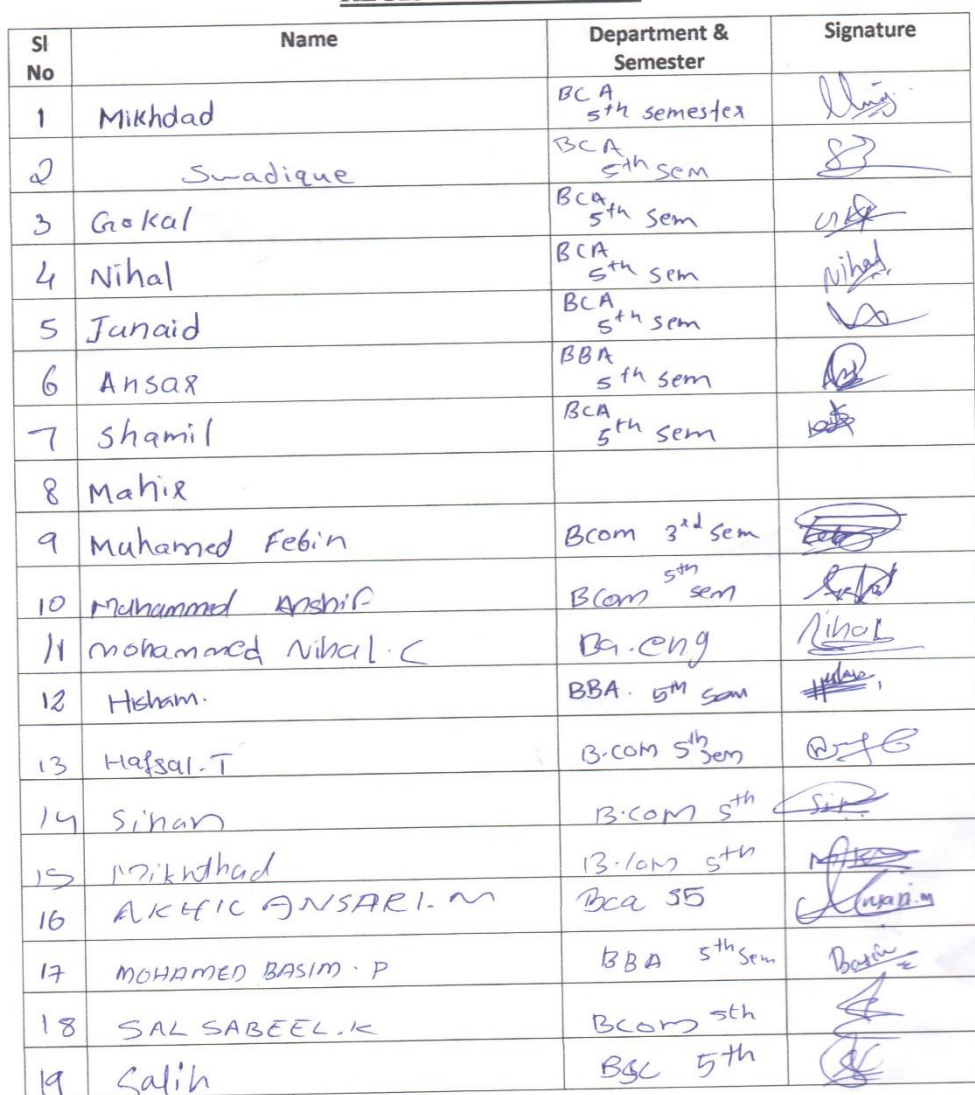 Sl No Name Department & Semester Signature
1 Mikhdad BCA 5th semester
2 Swadique BCA 5th sem
3 Gokal BCA 5th sem
4 Nihal BCA 5th sem Nihal
5 Junaid BCA 5th sem
6 Ansar BBA 5th sem
7 Shamil BCA 5th sem
8 Mahir
9 Muhamed Febin Bcom 3rd sem
10 Muhammed Anshif Bcom 5th sem
11 mohammed Nihal.C Ba.eng Nihal
12 Hisham. BBA. 5th sem
13 Hafsal.T B.com 5th sem
14 Sinan B.com 5th
15 Mikthad B.com 5th
16 AKHIL ANSARI.M Bca S5 Ansari.m
17 MOHAMED BASIM.P BBA 5th sem Basim
18 SAL SABEEL.K Bcom 5th
19 Salih BSC 5th